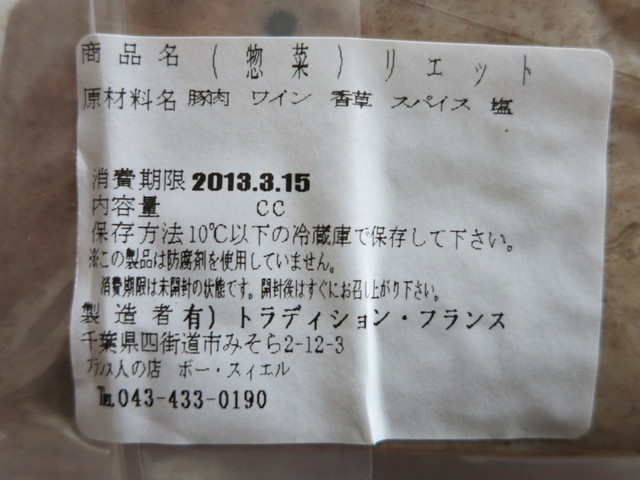 商品名 (惣菜) リエット
原材料名 豚肉 ワイン 香草 スパイス 塩
消費期限 2013.3.15
内容量 CC
保存方法10℃以下の冷蔵庫で保存して下さい。
※この製品は防腐剤を使用していません。
消費期限は未開封の状態です。開封後はすぐにお召し上がり下さい。
製造者 有)トラディション・フランス
千葉県四街道市みそら2-12-3
フランス人の店 ボー・スィエル
℡043-433-0190